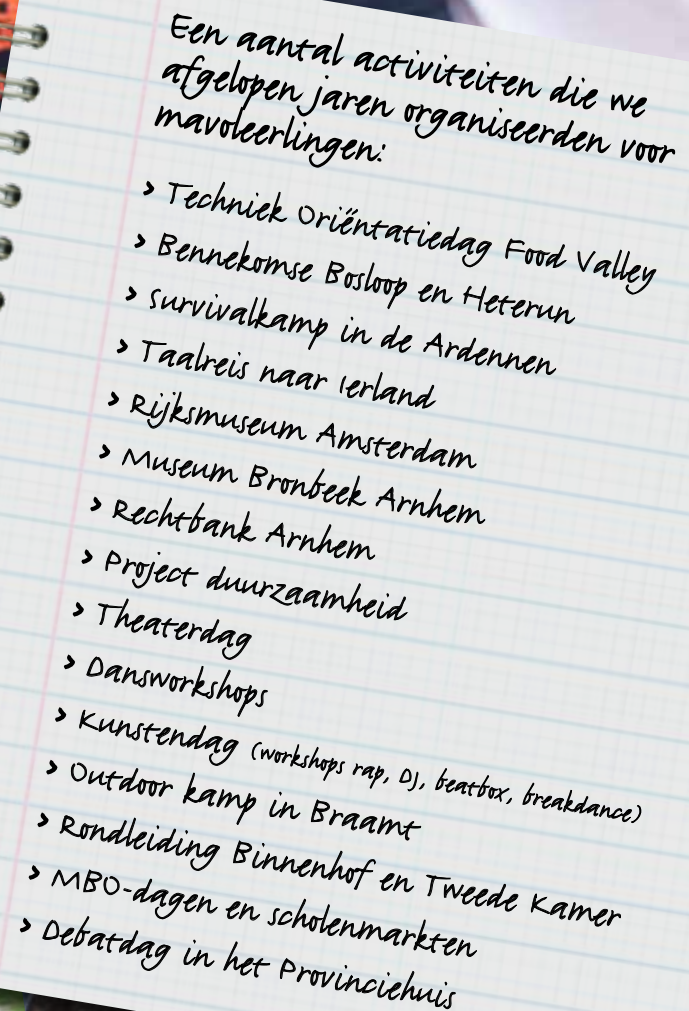 Een aantal activiteiten die we
afgelopen jaren organiseerden voor
mavoleerlingen:
> Techniek Oriëntatiedag Food Valley
> Bennekomse Bosloop en Heterun
> Survivalkamp in de Ardennen
> Taalreis naar Ierland
> Rijksmuseum Amsterdam
> Museum Bronbeek Arnhem
> Rechtbank Arnhem
> Project duurzaamheid
> Theaterdag
> Dansworkshops
> Kunstendag (workshops rap, DJ, beatbox, breakdance)
> Outdoor kamp in Braamt
> Rondleiding Binnenhof en Tweede Kamer
> MBO-dagen en scholenmarkten
> Debatdag in het Provinciehuis